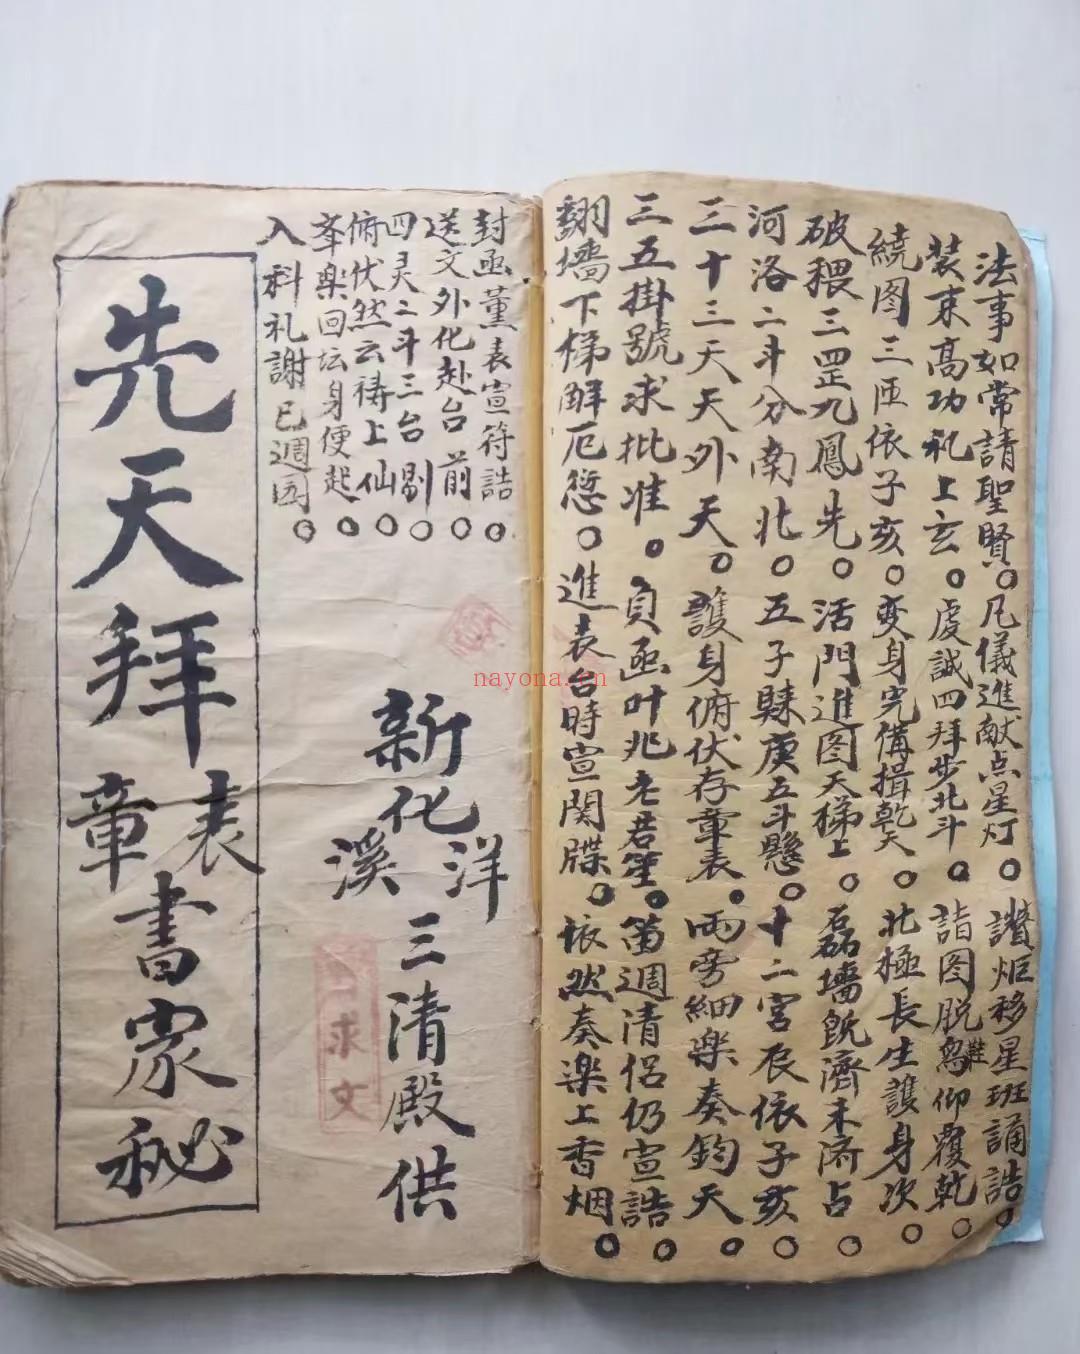 法事如常請聖賢。凡儀進献点星灯。讃炬移星班誦誥。
装束高功礼上玄。虔誠四拜步北斗。詣图脱舄鞋仰覆乾。
繞图三匝依子亥。变身完備揖乾天。北極長生護身次。
破穢三罡九鳳先。活門進图天梯上。磊墻旣濟未济占。
河洛二斗分南北。五子縣庚五斗懸。十二宫辰依子亥。
三十三天天外天。護身俯伏存章表。両旁细楽奏鈞天。
三五掛號求批准。負函叶兆老君笙。笛週清侣仍宣誥。
翻墻下梯觧厄愆。進表台時宣関牒。依然奏楽上香烟。
封函薫表宣符誥。
送文外化赴台前。
四灵二斗三台剔。
俯伏然云待上仙。
奏楽回坛身便起。
入科礼謝已週圆。
新化
洋溪
三清殿供
求文
先天拜表章書家秘
nayona.cn